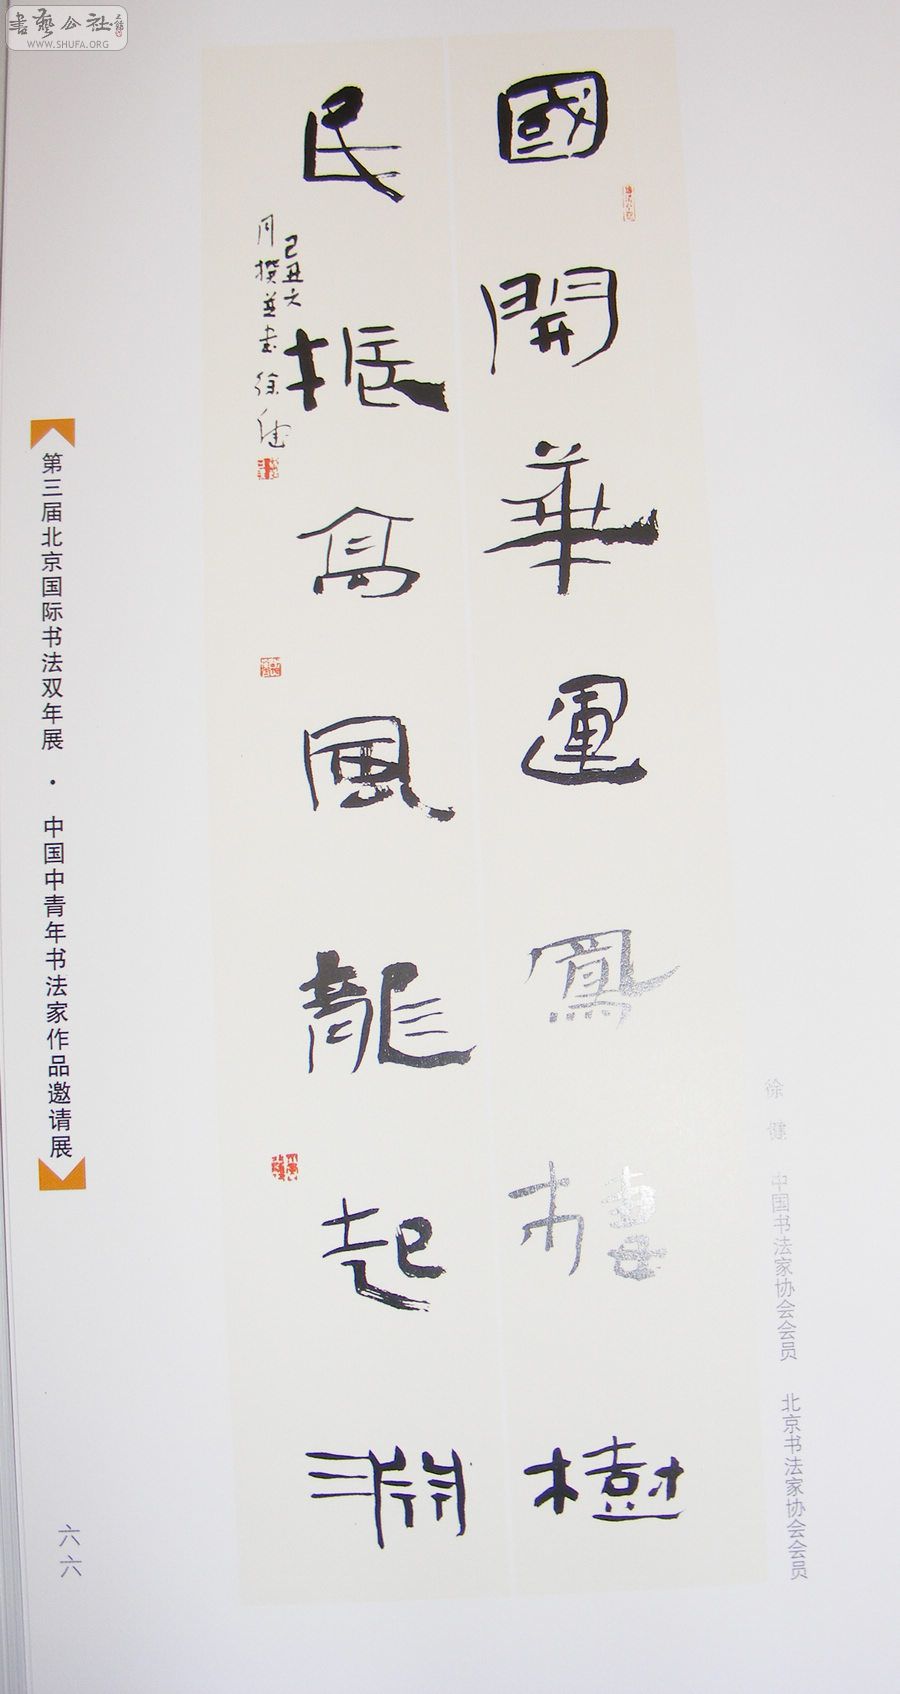 書藝公社
WWW.SHUFA.ORG
國開華運鳳棲樹
民振高風龍起淵
己丑六
月撰並書徐健
徐健 中国书法家协会会员 北京书法家协会会员
第三届北京国际书法双年展·中国中青年书法家作品邀请展
六六